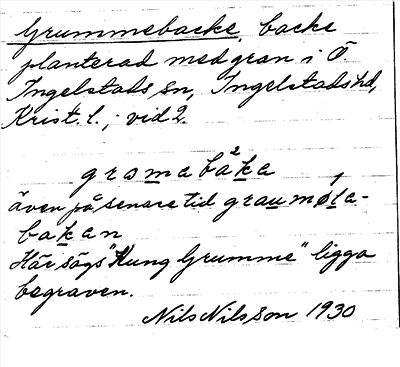 Grummebacke, backe
planterad med gran i Ö
Ingelstads sn, Ingelstads hd,
Krist. l.; vid 2.
gromabåka
2
även på senare tid graumøla-
1
bakan
Här sägs "Kung Grumme" ligga
begraven.
Nils Nilsson 1930